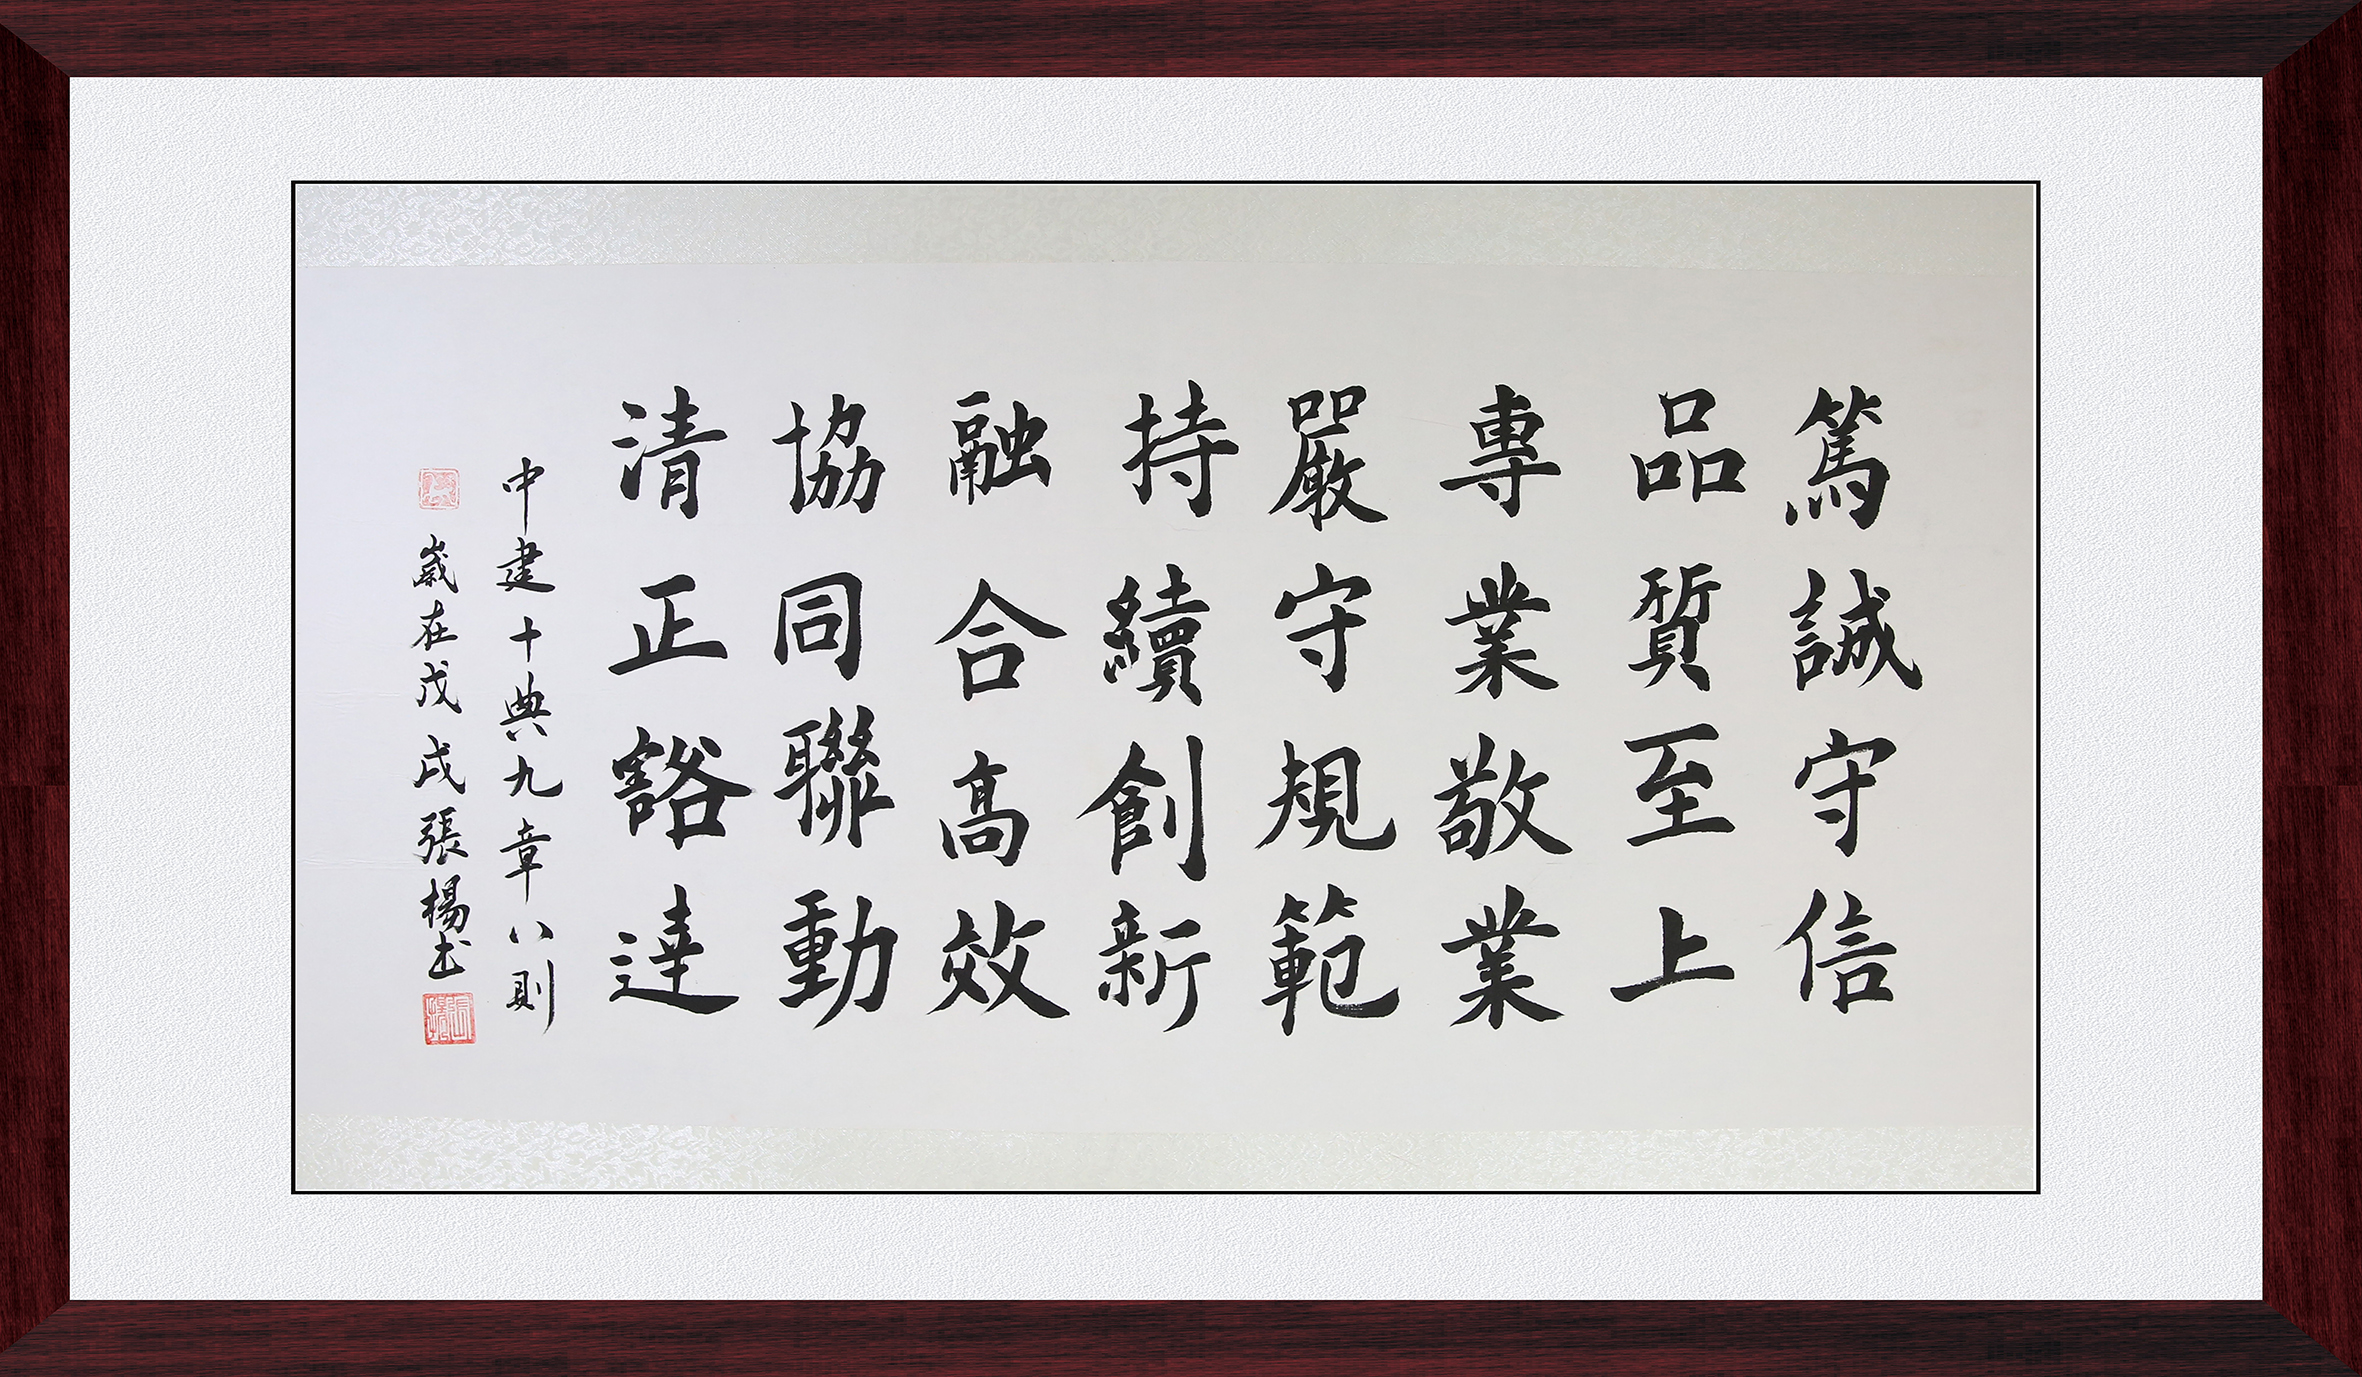 篤誠守信
品質至上
專業敬業
嚴守規範
持續創新
融合高效
協同聯動
清正豁達
中建十典九章八則
歲在戊戌張楊书